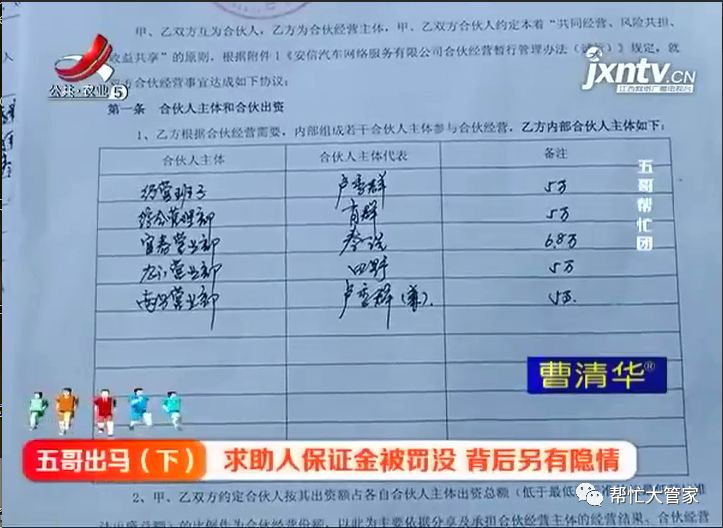 甲、乙双方互为合伙人，乙方为合伙经营主体，甲、乙双方合伙人约定本着“共同经营、风险共担、
收益共享”的原则，根据附件1《安信汽车网络服务有限公司合伙经营暂行管理办法（试行）》规定，就
双方合伙经营事宜达成如下协议：
公共·农业5
jxntv.CN
江西网络广播电视台
第一条 合伙人主体和合伙出资
1、乙方根据合伙经营需要，内部组成若干合伙人主体参与合伙经营，乙方内部合伙人主体如下：
合伙人主体 合伙人主体代表 备注
经营班子 卢雪群 5万
综合管理部 肖群 5万
宜春营业部 6.8万
九江营业部 田野 5万
南昌营业部 卢雪群(兼) 5万
五哥帮忙团
曹清华®
五哥出马（下） 求助人保证金被罚没 背后另有隐情
2、甲、乙双方约定合伙人按其出资额占各自合伙人主体出资总额（低于最低
帮忙大管家
的比例作为合伙经营份额，以此为主要依据分享及承担合伙主体的经营结果。合伙经营